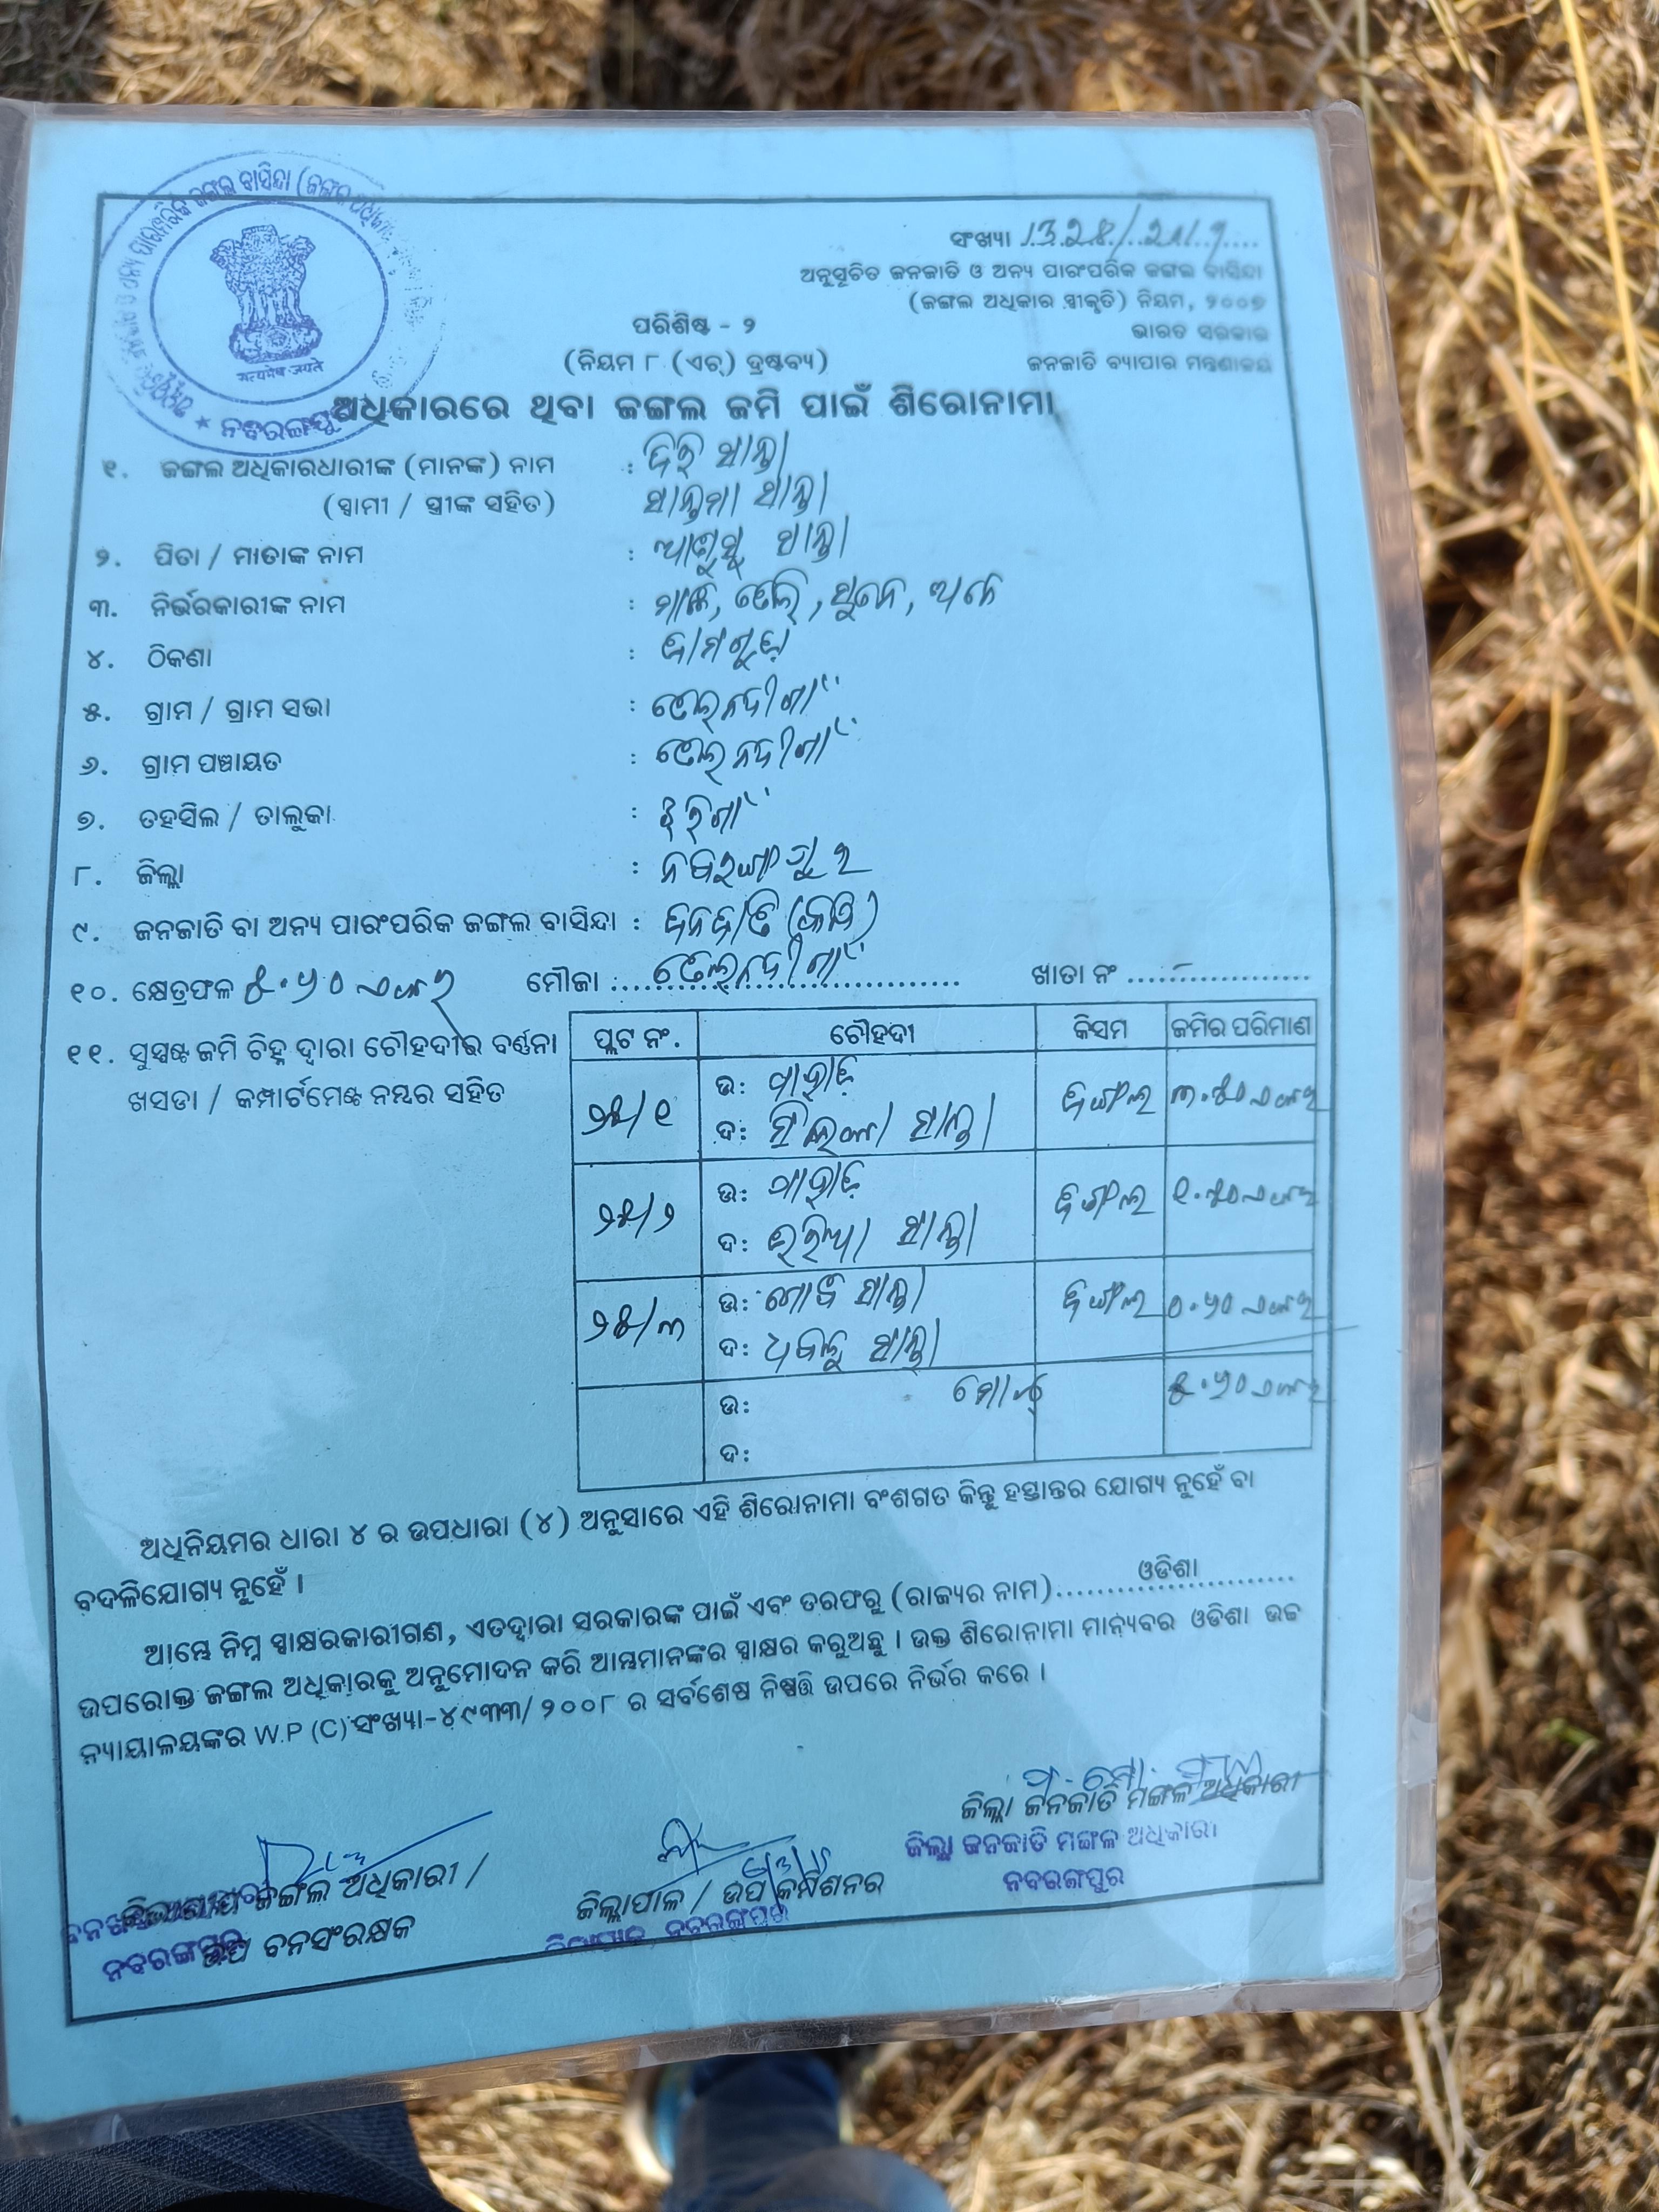 ସଂଖ୍ୟା 1328/2019
ଅନୁସୂଚିତ ଜନଜାତି ଓ ଅନ୍ୟ ପାରଂପରିକ ଜଙ୍ଗଲ ବାସିନ୍ଦା
(ଜଙ୍ଗଲ ଅଧିକାର ସ୍ୱୀକୃତି) ନିୟମ, ୨୦୦୭
ଭାରତ ସରକାର
ଜନଜାତି ବ୍ୟାପାର ମନ୍ତ୍ରଣାଳୟ
ପରିଶିଷ୍ଟ - ୨
(ନିୟମ ୮ (ଏଚ୍) ଦ୍ରଷ୍ଟବ୍ୟ)
ଅଧିକାରରେ ଥିବା ଜଙ୍ଗଲ ଜମି ପାଇଁ ଶିରୋନାମା
सत्यमेव जयते
୧. ଜଙ୍ଗଲ ଅଧିକାରଧାରୀଙ୍କ (ମାନଙ୍କ) ନାମ :
(ସ୍ୱାମୀ / ସ୍ତ୍ରୀଙ୍କ ସହିତ)
୨. ପିତା / ମାତାଙ୍କ ନାମ :
୩. ନିର୍ଭରକାରୀଙ୍କ ନାମ :
୪. ଠିକଣା : ଜାମଗୁଡ଼ା
୫. ଗ୍ରାମ / ଗ୍ରାମ ସଭା : ତେଲନଦୀଗାଁ
୬. ଗ୍ରାମ ପଞ୍ଚାୟତ : ତେଲନଦୀଗାଁ
୭. ତହସିଲ / ତାଲୁକା : ଝରିଗାଁ
୮. ଜିଲ୍ଲା : ନବରଙ୍ଗପୁର
୯. ଜନଜାତି ବା ଅନ୍ୟ ପାରଂପରିକ ଜଙ୍ଗଲ ବାସିନ୍ଦା : ଜନଜାତି
୧୦. କ୍ଷେତ୍ରଫଳ ୫.୬୦ ଏକର ମୌଜା ତେଲନଦୀଗାଁ ଖାତା ନଂ -
୧୧. ସୁସ୍ପଷ୍ଟ ଜମି ଚିହ୍ନ ଦ୍ୱାରା ଚୌହଦୀର ବର୍ଣ୍ଣନା
ଖସଡା / କମ୍ପାର୍ଟମେଣ୍ଟ ନମ୍ବର ସହିତ
ପ୍ଲଟ ନଂ. ଚୌହଦୀ କିସମ ଜମିର ପରିମାଣ
୨୫/୧ ଉ: ପାହାଡ଼ ଜଙ୍ଗଲ ୩.୫୦ ଏକର
ଦ: ସାନ୍ତା
୨୫/୨ ଉ: ପାହାଡ଼ ଜଙ୍ଗଲ ୧.୫୦ ଏକର
ଦ: ସାନ୍ତା
୨୫/୩ ଉ: ସାନ୍ତା ଜଙ୍ଗଲ ୦.୬୦ ଏକର
ଦ: ସାନ୍ତା
ଉ: ମୋଟ ୫.୬୦ ଏକର
ଦ:
ଅଧିନିୟମର ଧାରା ୪ ର ଉପଧାରା (୪) ଅନୁସାରେ ଏହି ଶିରୋନାମା ବଂଶଗତ କିନ୍ତୁ ହସ୍ତାନ୍ତର ଯୋଗ୍ୟ ନୁହେଁ ବା
ବଦଳିଯୋଗ୍ୟ ନୁହେଁ ।
ଆମ୍ଭେ ନିମ୍ନ ସ୍ୱାକ୍ଷରକାରୀଗଣ, ଏତଦ୍ୱାରା ସରକାରଙ୍କ ପାଇଁ ଏବଂ ତରଫରୁ (ରାଜ୍ୟର ନାମ) ଓଡିଶା
ଉପରୋକ୍ତ ଜଙ୍ଗଲ ଅଧିକାରକୁ ଅନୁମୋଦନ କରି ଆମ୍ଭମାନଙ୍କର ସ୍ୱାକ୍ଷର କରୁଅଛୁ । ଉକ୍ତ ଶିରୋନାମା ମାନ୍ୟବର ଓଡିଶା ଉଚ୍ଚ
ନ୍ୟାୟାଳୟଙ୍କର W.P (C) ସଂଖ୍ୟା-୪୯୩୩/୨୦୦୮ ର ସର୍ବଶେଷ ନିଷ୍ପତ୍ତି ଉପରେ ନିର୍ଭର କରେ ।
ଜିଲ୍ଲା ଜନଜାତି ମଙ୍ଗଳ ଅଧିକାରୀ
ଜିଲ୍ଲା ଜନଜାତି ମଙ୍ଗଳ ଅଧିକାରୀ
ନବରଙ୍ଗପୁର
ଜଙ୍ଗଲ ଅଧିକାରୀ /
ଉପ ବନସଂରକ୍ଷକ
ନବରଙ୍ଗପୁର
ଜିଲ୍ଲାପାଳ / ଉପ କମିଶନର
ଜିଲ୍ଲାପାଳ, ନବରଙ୍ଗପୁର